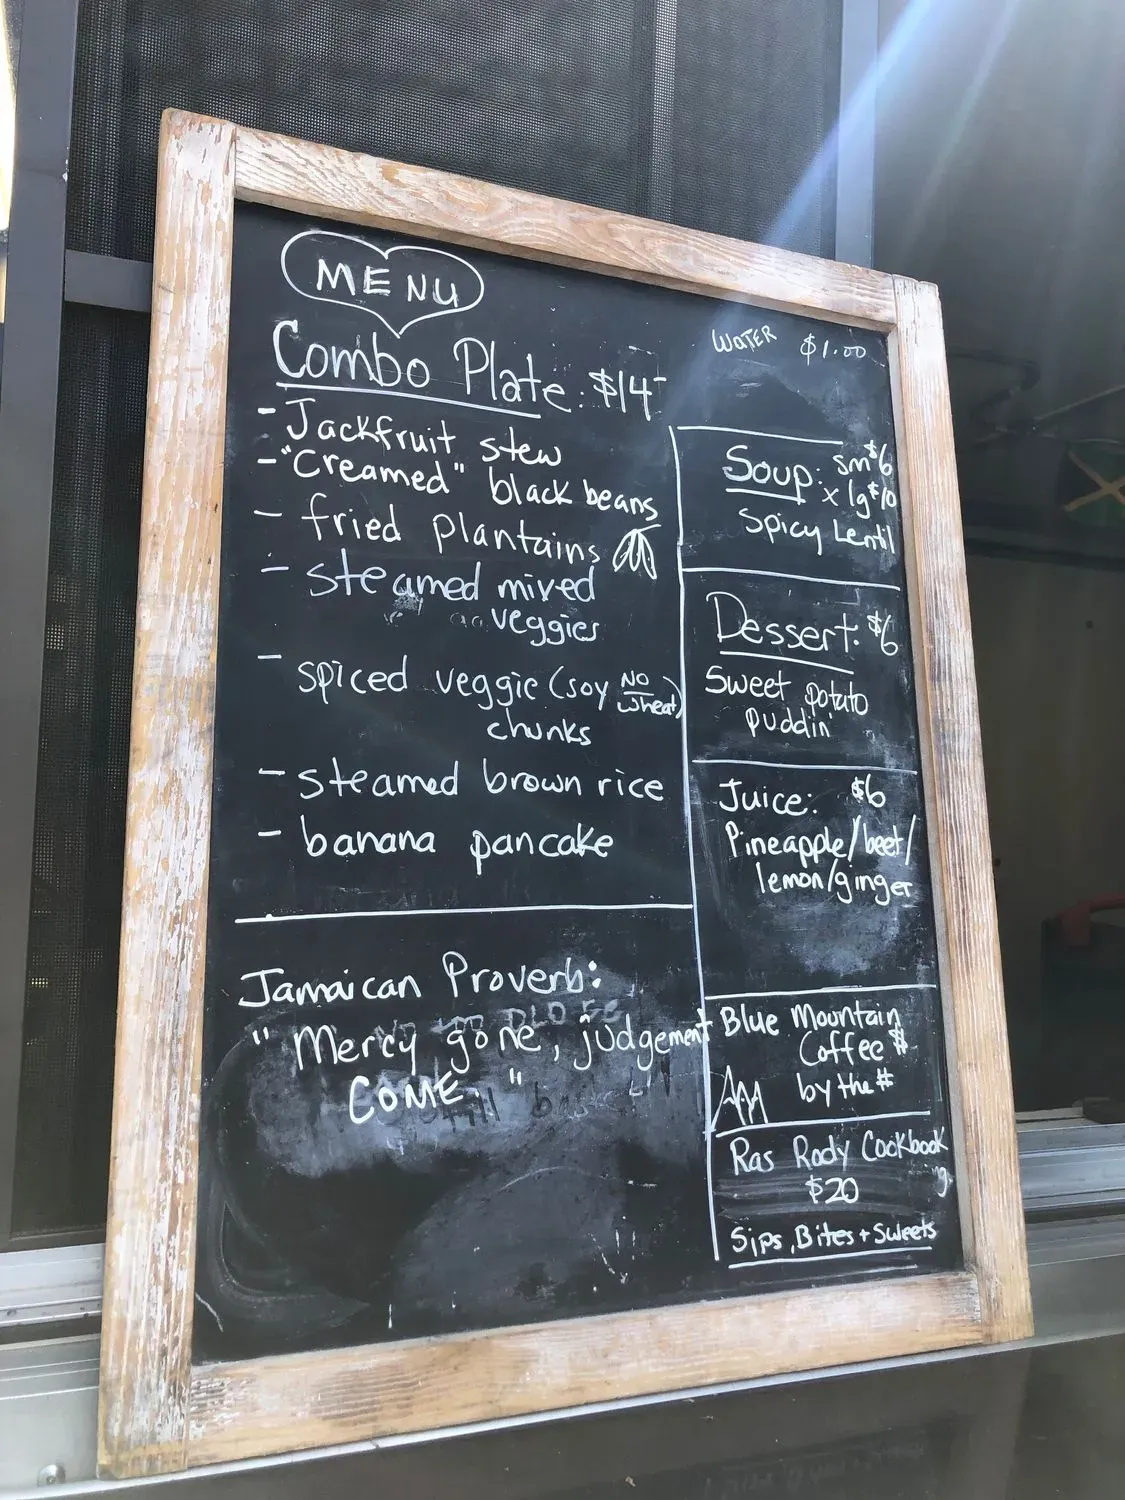 MENU
Combo Plate: $14
- Jackfruit stew
- "Creamed" black beans
- fried plantains
- steamed mixed
veggies
- spiced veggie (soy NO wheat)
chunks
- steamed brown rice
- banana pancake
Jamaican Proverb:
"Mercy gone, judgement
COME."
WATER $1.00
Soup: sm $6
x lg $10
Spicy Lentil
Dessert: $6
Sweet potato
puddin'
Juice: $6
Pineapple/beet/
lemon/ginger
Blue Mountain
Coffee $
by the #
Ras Rody Cookbook
$20
Sips, Bites + Sweets